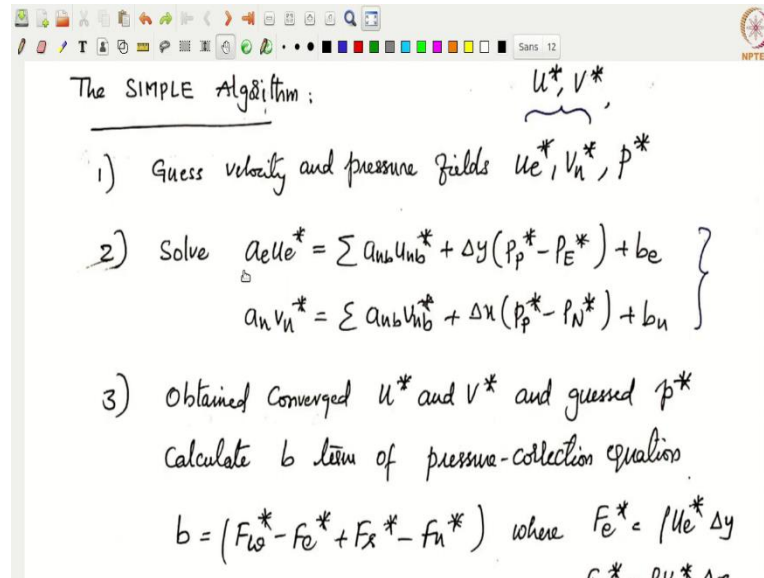 Sans 12
NPTE
The SIMPLE Algorithm:
U*, V*,
1) Guess velocity and pressure fields ue*, vn*, p*
2) Solve aeue* = Σ anbunb* + Δy(Pp* - PE*) + be
anvn* = Σ anbvnb* + Δx(Pp* - PN*) + bn
3) Obtained Converged u* and v* and guessed p*
Calculate b term of pressure-correction equation
b = (Fw* - Fe* + Fs* - Fn*) where Fe* = ρue* Δy